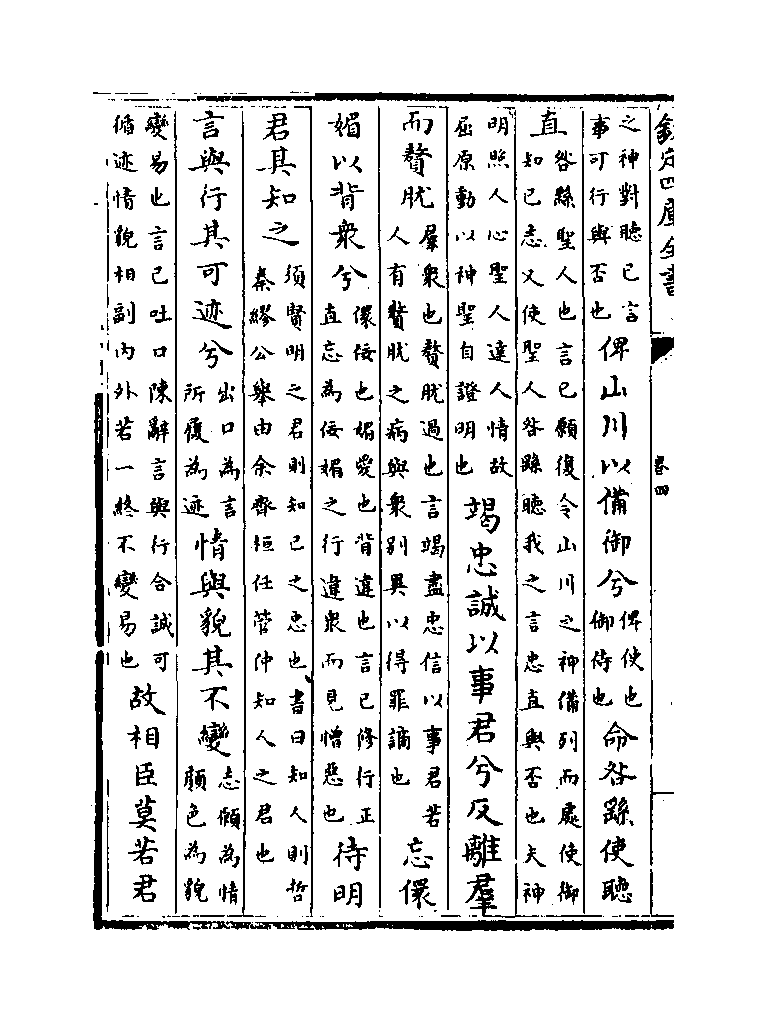 欽定四庫全書
卷四
之神對聽己言事可行與否也俾山川以備御兮俾使也御侍也命咎繇使聽
直咎繇聖人也言己願復令山川之神備列而處使御知己志又使聖人咎繇聽我之言忠直與否也夫神
明照人心聖人達人情故屈原動以神聖自證明也竭忠誠以事君兮反離羣
而贅肬羣衆也贅肬過也言竭盡忠信以事君若人有贅肬之病與衆别異以得罪謫也忘儇
媚以背衆兮儇佞也媚愛也背違也言己修行正直忘為佞媚之行違衆而見憎惡也待明
君其知之須賢明之君則知己之忠也書曰知人則哲秦繆公舉由余齊桓任管仲知人之君也
言與行其可迹兮出口為言所履為迹情與貌其不變志願為情顔色為貌
變易也言己吐口陳辭言與行合誠可循迹情貌相副内外若一終不變易也故相臣莫若君